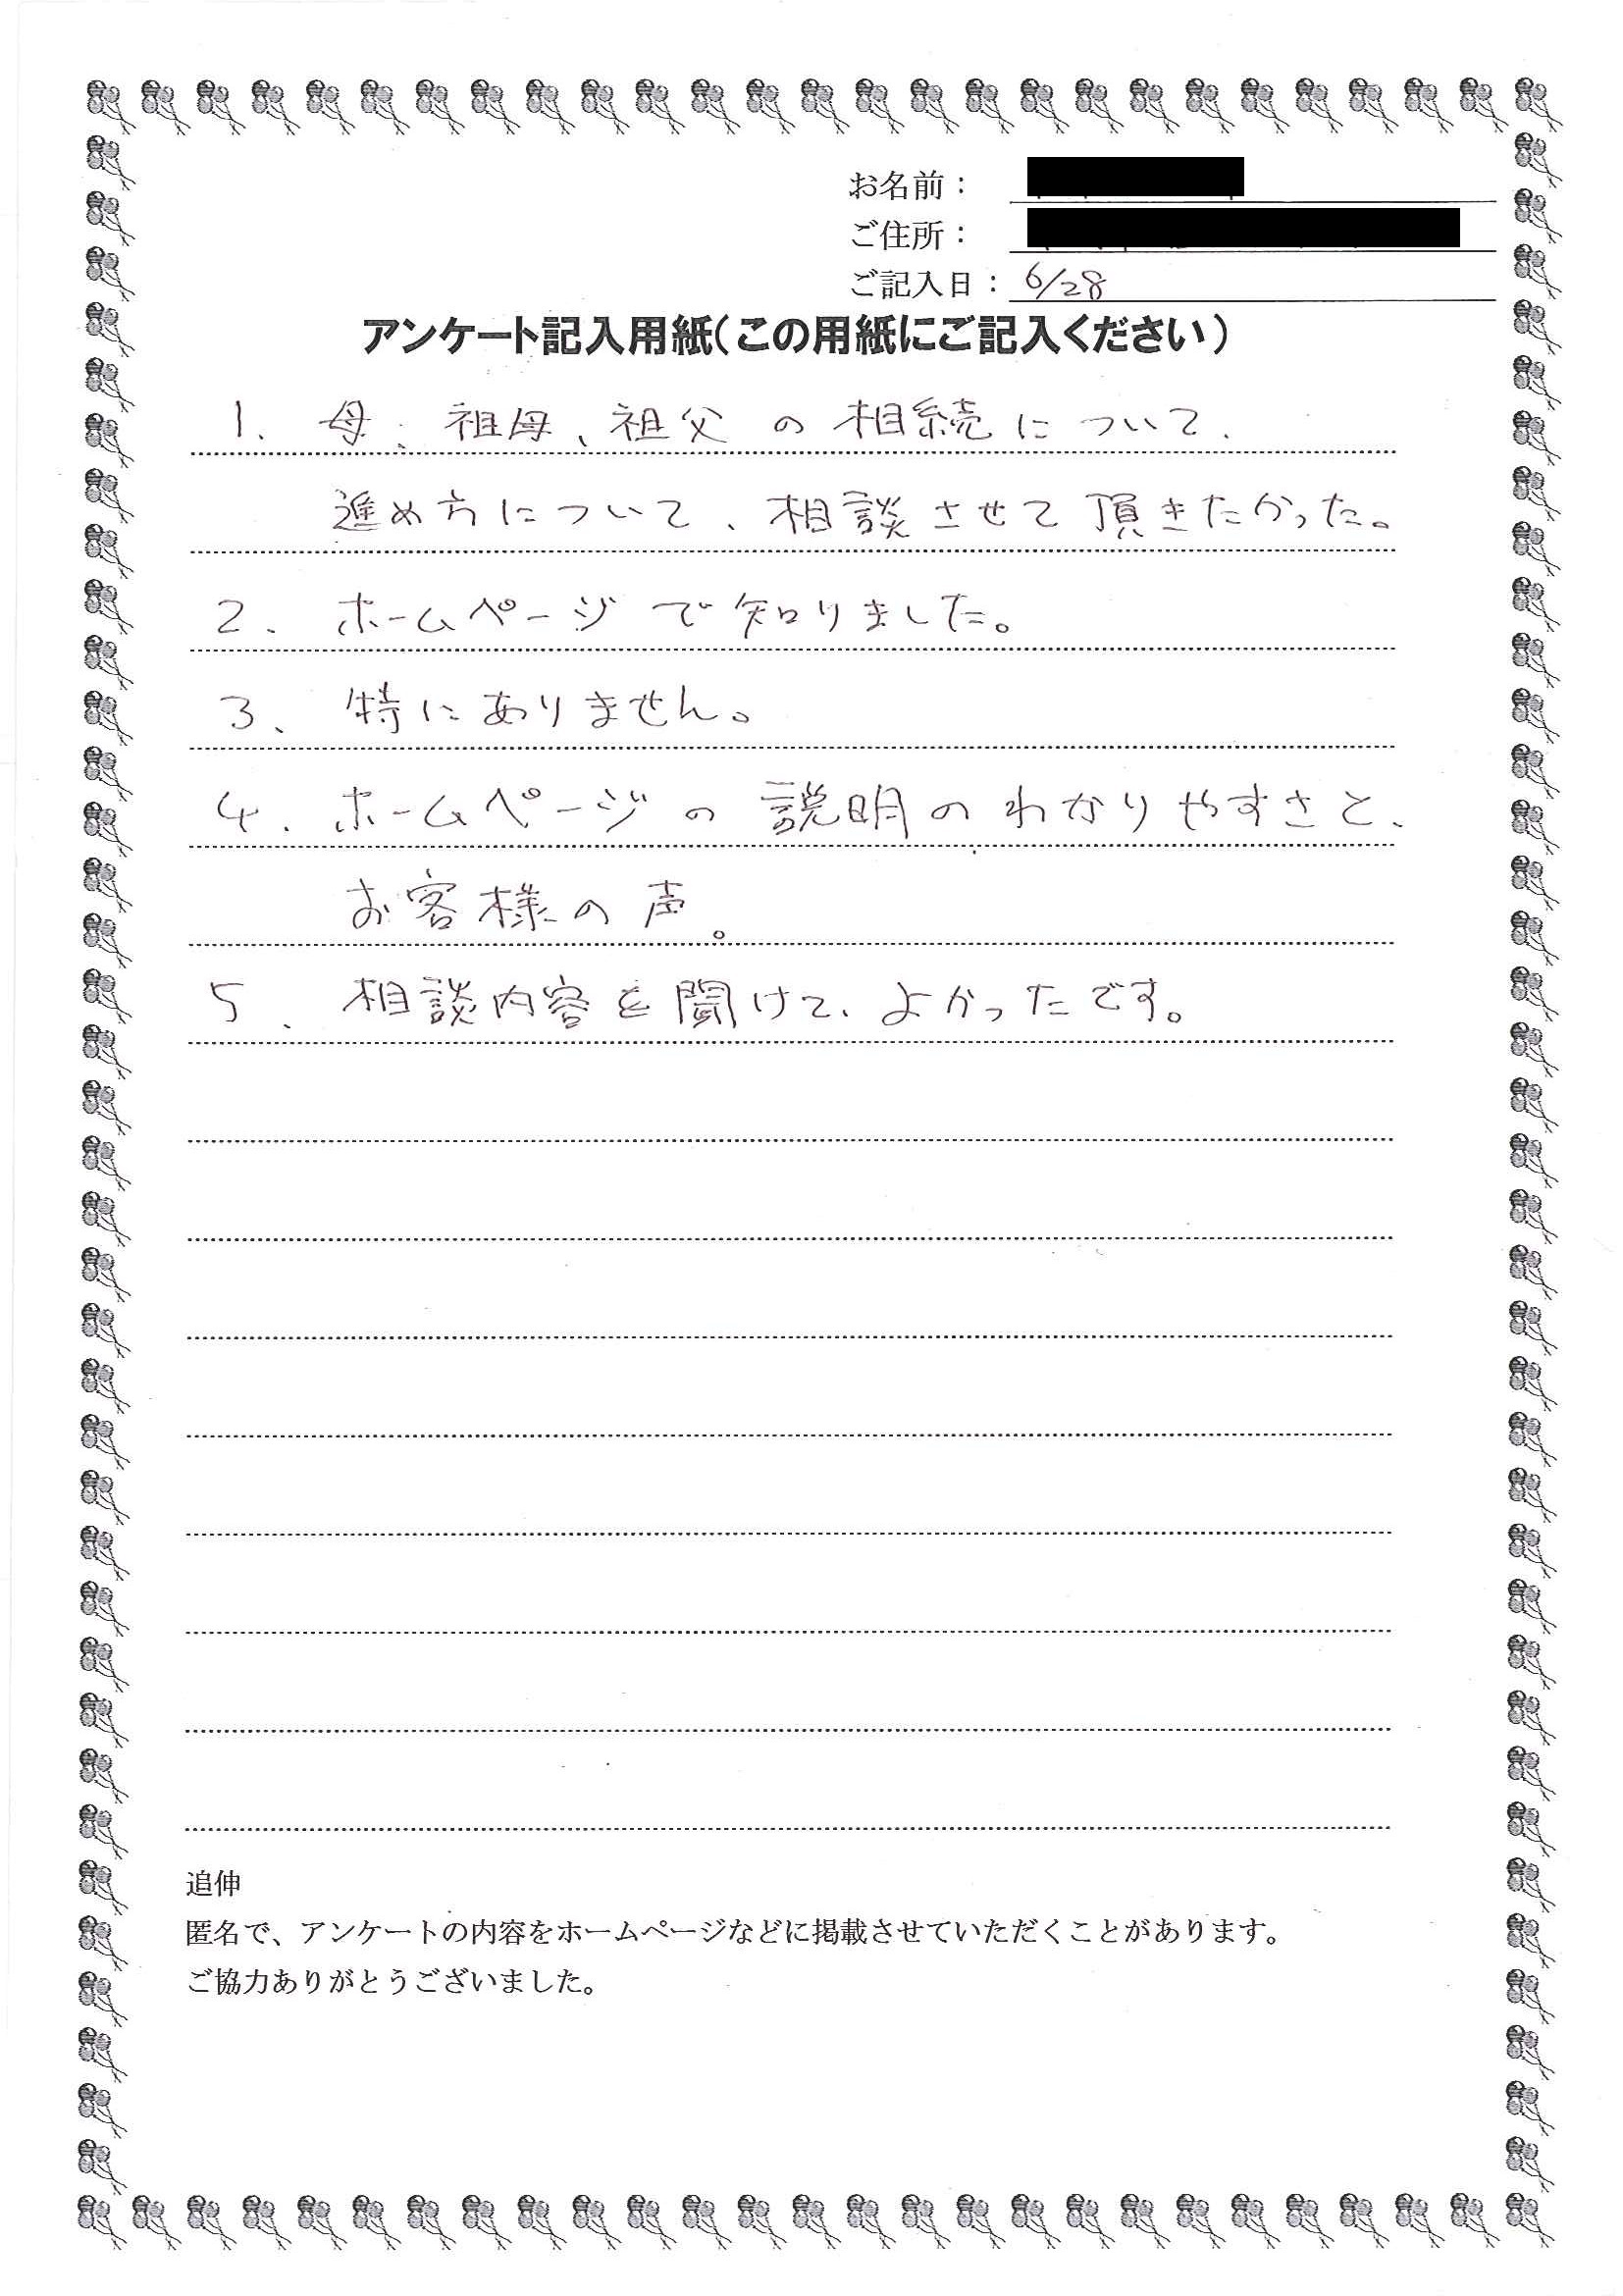 お名前：
ご住所：
ご記入日：6/28
アンケート記入用紙（この用紙にご記入ください）
1. 母、祖母、祖父の相続について、
進め方について、相談させて頂きたかった。
2. ホームページで知りました。
3、特にありません。
4. ホームページの説明のわかりやすさと、
お客様の声。
5. 相談内容を聞けて、よかったです。
追伸
匿名で、アンケートの内容をホームページなどに掲載させていただくことがあります。
ご協力ありがとうございました。